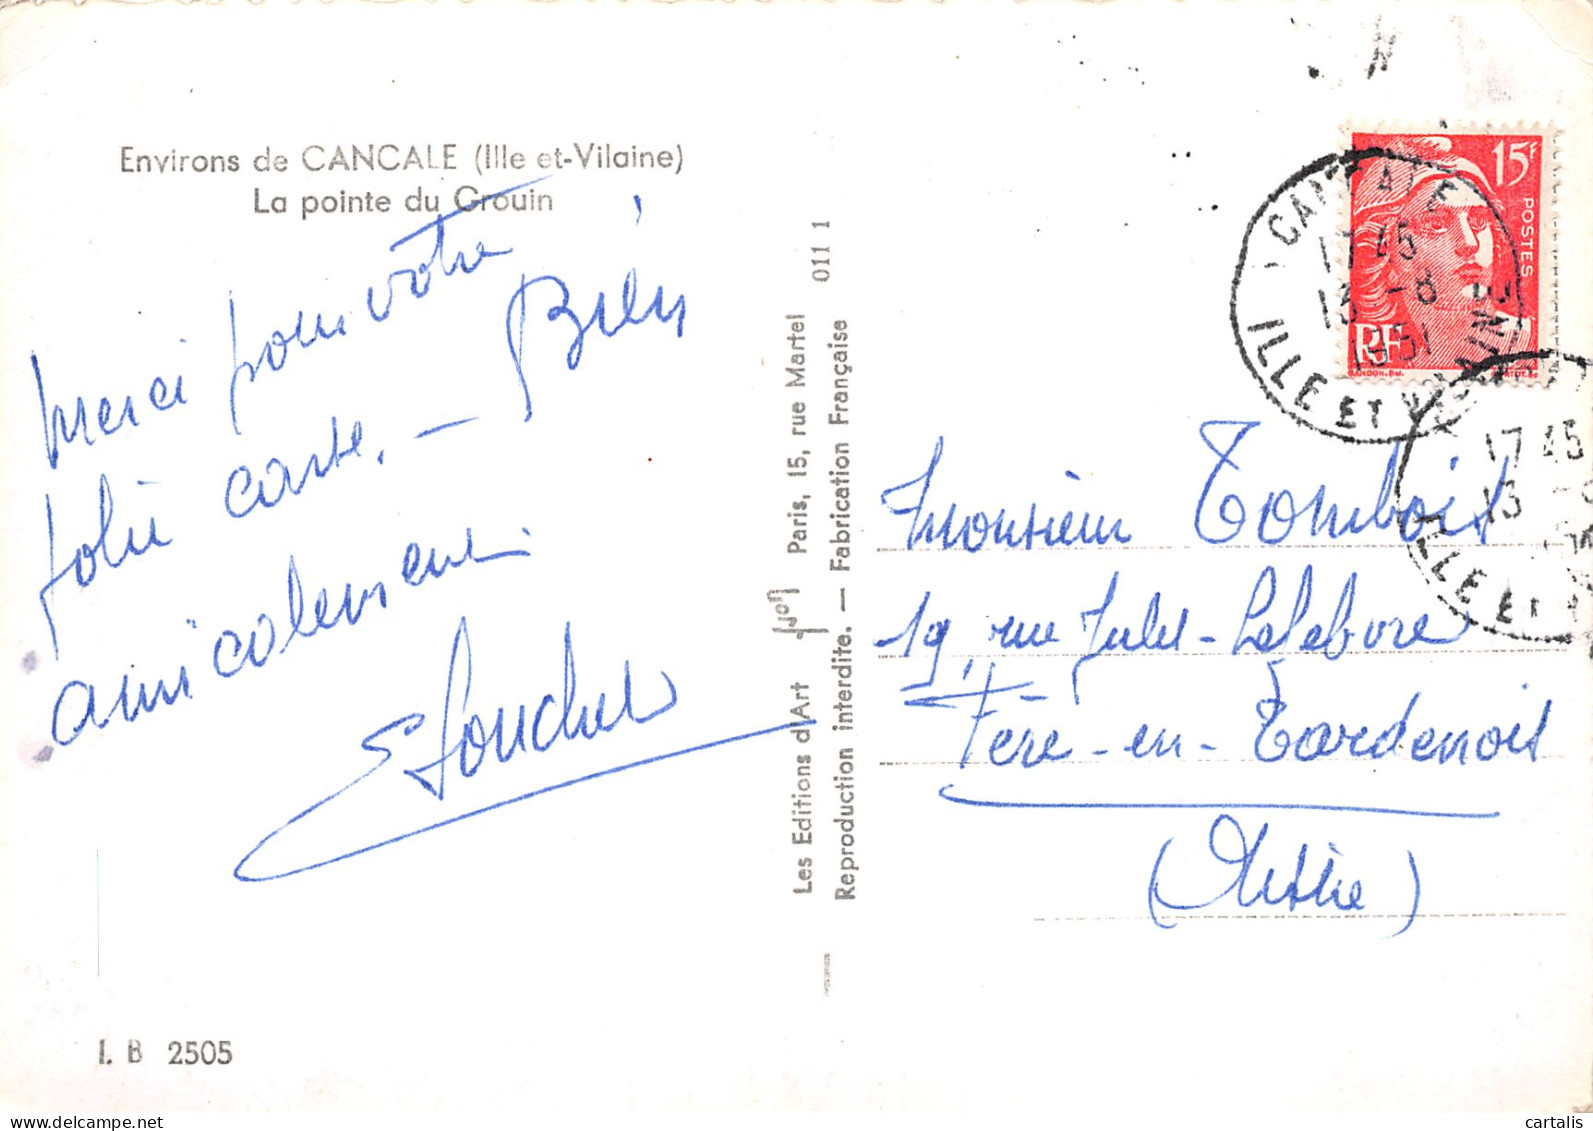 Environs de CANCALE (Ille et-Vilaine)
La pointe du Grouin
Merci pour votre
jolie carte. — Bien
amicalement
I. B 2505
Les Editions d'Art Paris, 15, rue Martel 011 1
Reproduction interdite. — Fabrication Française
15F
POSTES
RF
CANCALE
17 45
13 -8
1951
ILLE ET VILAINE
17 45
13
ILLE ET
Monsieur Tombois
19, rue Jules-Lefebvre
Fère-en-Tardenois
(Aisne)
www.delcampe.net
cartalis